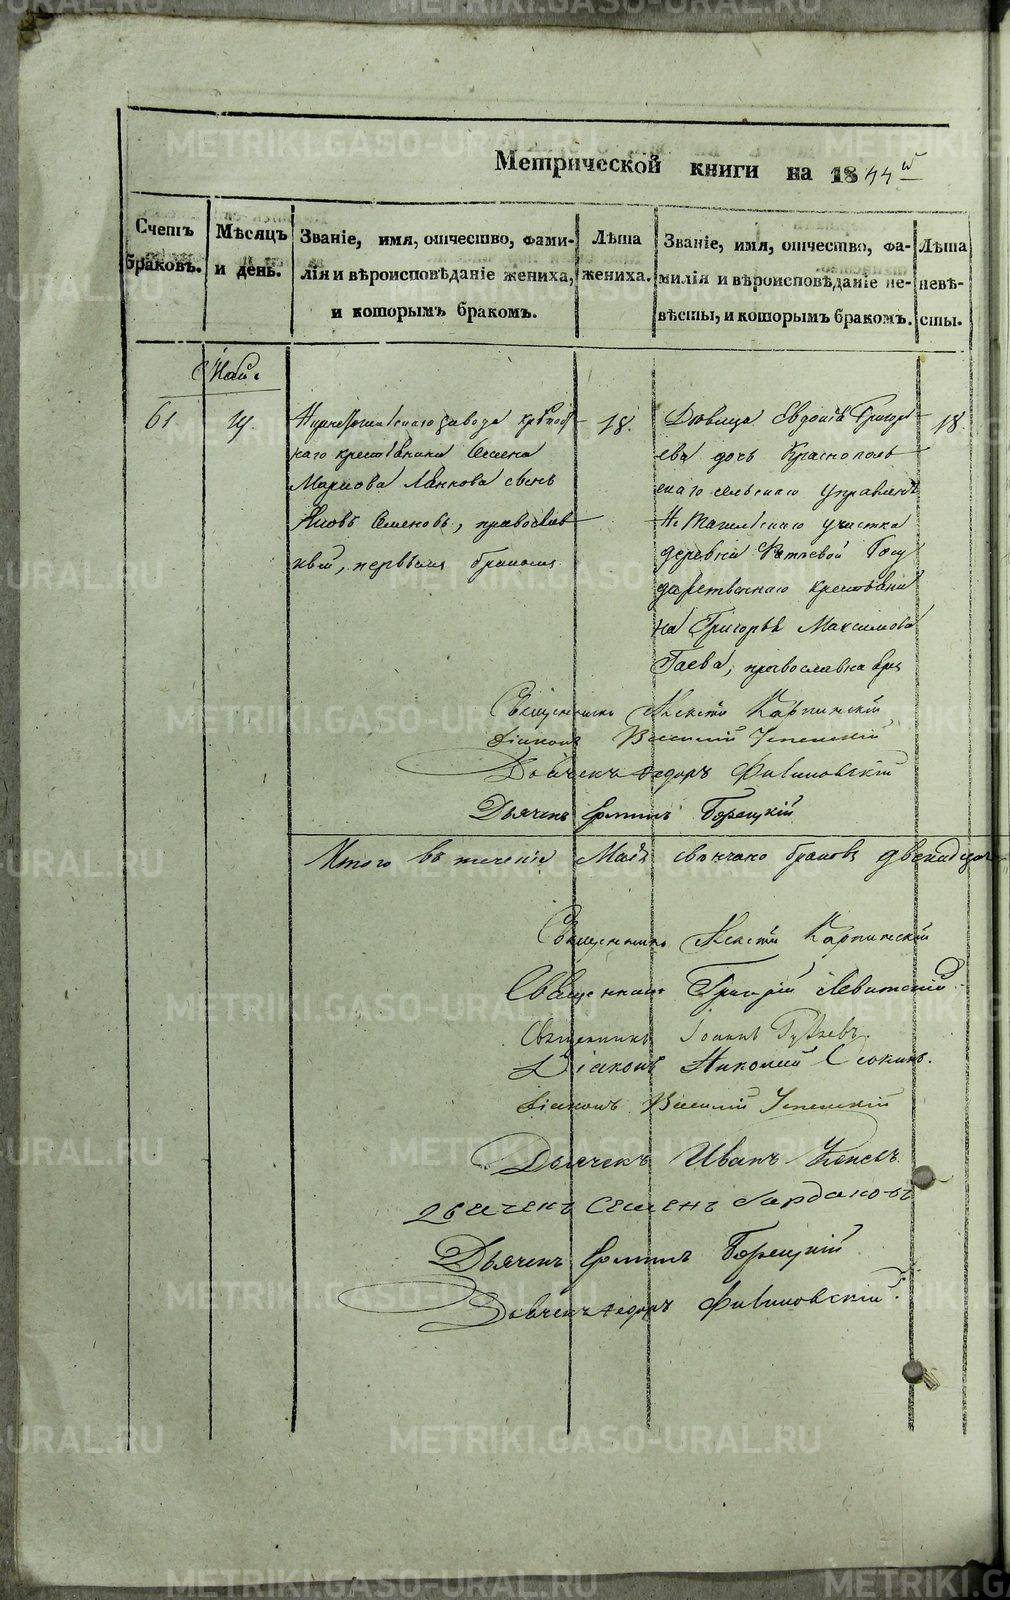 METRIKI.GASO-URAL.RU
Метрической книги на 1844й
Счетъ браковъ.
Мѣсяцъ и день.
Званіе, имя, отчество, фами-
лія и вѣроисповѣданіе жениха,
и которымъ бракомъ.
Лѣта
жениха.
Званіе, имя, отчество, фа-
милія и вѣроисповѣданіе не-
вѣсты, и которымъ бракомъ.
Лѣта
невѣ-
сты.
Май.
61
завода крѣпост
наго крестьянина Семена
Маркова сынъ
Яковъ Семеновъ, православ
ный, первымъ бракомъ
18.
Дѣвица Евдокія Григор
ева дочь Краснополь
скаго сельскаго управленія
Н Тагильскаго участка
деревни Госу
дарственнаго крестьяни
на Григорья Максимова
Гаева, православна
18.
Священникъ Алексѣй Карпинскій
Діаконъ Василій Успенскій
Дьячекъ Федоръ
Дьячекъ Ермилъ Борецкій
Итого въ теченіе Мая свѣнчано браковъ двенадцать
Священникъ Алексѣй Карпинскій
Священникъ Григорій Левитскій
Священникъ Іоаннъ
Діаконъ Николай
Діаконъ Василій Успенскій
Дьячекъ Иванъ
Дьячекъ Семенъ
Дьячекъ Ермилъ Борецкій
Дьячекъ Федоръ